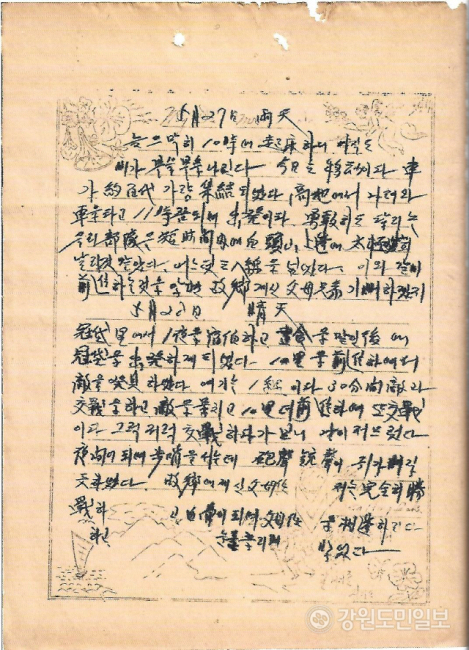 5月27日 雨天
늦으막히 10時에 起床하니 아직도
비가 부슬부슬 나린다 今日은 總攻이다 車
가 約百代 가량 集結되었다 高地에서 나려와
車를 타고 11時쯤 되여 出發이다 勇敢히도 달리는
우리 部隊은 短時間內에
날리것 같았다 어느듯 三八線을 넘었다 이와 같이
前進하는것을 알면 故鄕 게신 父母兄弟 기뻐하겠지
5月28日 晴天
里에서 1夜을 宿泊하고 晝食을 끝인後에
出發하게 되었다 10里을 前進하여서
敵을 發見하였다 여기는 1線이다 30分間 敵과
交戰을하고 敵을 물리고 10里 더 前進하여 또 交戰
이다 그럭저럭 交戰하다가 보니 날이 저므렀다
夜間이 되여 步哨을 서는데 砲聲 銃聲이 귀가
故鄕에 게신 父母任 저는 完全히 勝
戰하
하고 이 되여 父母任 相逢하리다
눈물 흘리며
강원도민일보